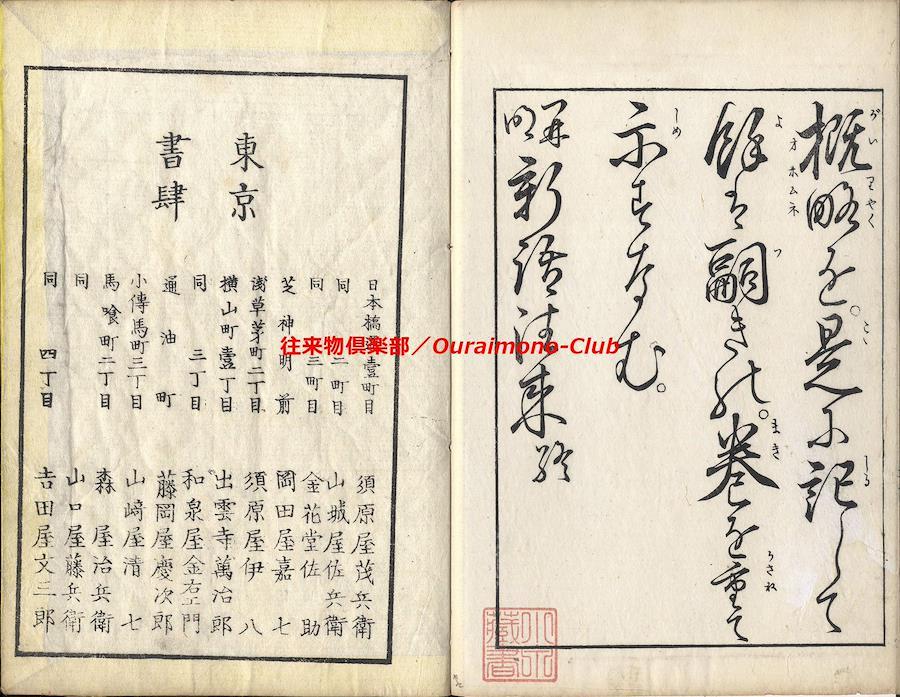 概略を。是に記して
餘は嗣きの。巻を重て
示さなむ。
開明新語往来終
東京
書肆
日本橋通壹町目 須原屋茂兵衛
同 二町目 山城屋佐兵衛
同 三町目 金花堂佐助
芝神明前 岡田屋嘉七
淺草茅町二丁目 須原屋伊八
横山町壹丁目 出雲寺萬治郎
同 三丁目 和泉屋金右エ門
通油町 藤岡屋慶次郎
小傳馬町三丁目 山﨑屋清七
馬喰町二丁目 森屋治兵衛
同 山口屋藤兵衛
同 四丁目 吉田屋文三郎
往来物倶楽部／Ouraimono-Club